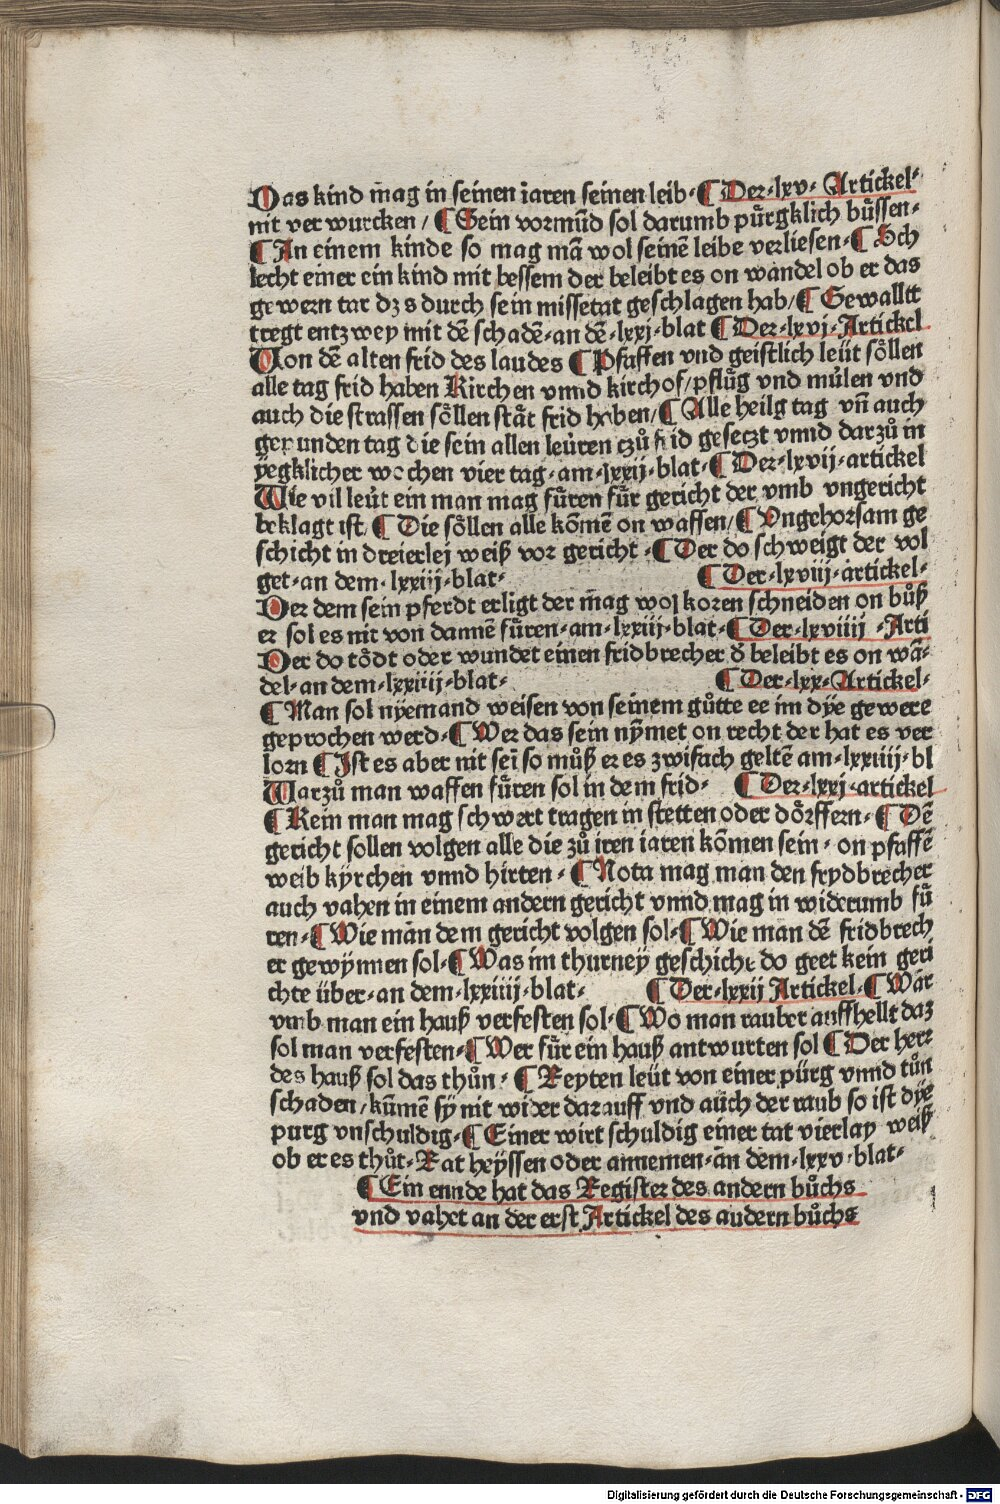 Das kind mag in seinen iaren seinen leib· ¶ Der·lxv· Artickel·
nit ver wurcken / ¶ Sein vormūd sol darumb pürgklich büssen·
¶ An einem kinde so mag mā wol seinē leibe verliesen· ¶ Sch
lecht einer ein kind mit bessem der beleibt es on wandel ob er das
gewern tar dz s durch sein missetat geschlagen hab/ ¶ Gewalltt
tregt entzwey mit dē schadē·an dē·lxxj·blat ¶ Der·lxvj·Artickel
Von dē alten frid des landes ¶ Pfaffen vnd geistlich leüt söllen
alle tag frid haben Kirchen vnnd kirchof/pflůg vnd můlen vnd
auch die strassen söllen stät frid haben/ ¶ Alle heilg tag vñ auch
gepunden tag die sein allen leüten czů frid gesetzt vnnd darzů in
yegklicher wochen vier tag·am·lxxij·blat· ¶ Der·lxvij·artickel
Wie vil leüt ein man mag füren für gericht der vmb vngericht
beklagt ist/ ¶ Die söllen alle kōmē on waffen/ ¶ Vngehorsam ge
schicht in dreierlej weiß vor gericht· ¶ Der do schweigt der vol
get·an dem·lxxiij·blat· ¶ Der·lxviij·artickel·
Der dem sein pferdt erligt der mag wol koren schneiden on bůß
er sol es nit von dannē füren·am·lxxiij·blat· ¶ Der·lxviiij·Arti
Der do tödt oder wundet einen fridbrecher d̄ beleibt es on wā·
del·an dem·lxxiiij·blat· ¶ Der·lxx·Artickel·
¶ Man sol nyemand weisen von seinem gůtte ee im dye gewere
geprochen werd· ¶ Wer das sein nȳmet on recht der hat es ver
lorn ¶ Ist es aber nit sei so můß er es zwifach geltē am·lxxiiij·bl
Warzů man waffen füren sol in dem frid· ¶ Der·lxxj·artickel
¶ Kein man mag schwert tragen in stetten oder dörffern· ¶ Dē
gericht sollen volgen alle die zů iren iaren kōmen sein· on pfaffē
weib kyrchen vnnd hirten· ¶ Nota mag man den frydbrecher
auch vahen in einem andern gericht vnnd mag in widerumb fü
ren· ¶ Wie man dem gericht volgen sol· ¶ Wie man dē fridbrech
er gewynnen sol· ¶ Was im thurney geschicht do geet kein geri
chte über·an dem·lxxiiij·blat· ¶ Der·lxxij Artickel· ¶ War
vmb man ein hauß verfesten sol· ¶ Wo man rauber auffhellt daz
sol man verfesten· ¶ Wer für ein hauß antwurten sol ¶ Der herr
des hauß sol das thůn· ¶ Reyten leüt von einer pürg vnnd tůn
schaden/kūmē sy nit wider darauff vnd auch der raub so ist dye
purg vnschuldig· ¶ Einer wirt schuldig einer tat vierlay weiß
ob er es thůt·Rat heyssen oder annemen·an dem·lxxv·blat·
¶ Ein ennde hat das Register des andern bůchs
vnd vahet an der erst Artickel des andern bůchs
Digitalisierung gefördert durch die Deutsche Forschungsgemeinschaft - DFG